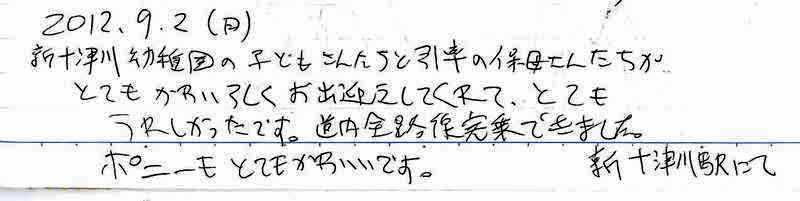 2012.9.2(日)
新十津川幼稚園の子どもさんたちと引率の保母さんたちが
とてもかわいらしくお出迎えしてくれて、とても
うれしかったです。道内全路線完乗できました。
ポニーもとてもかわいいです。 新十津川駅にて